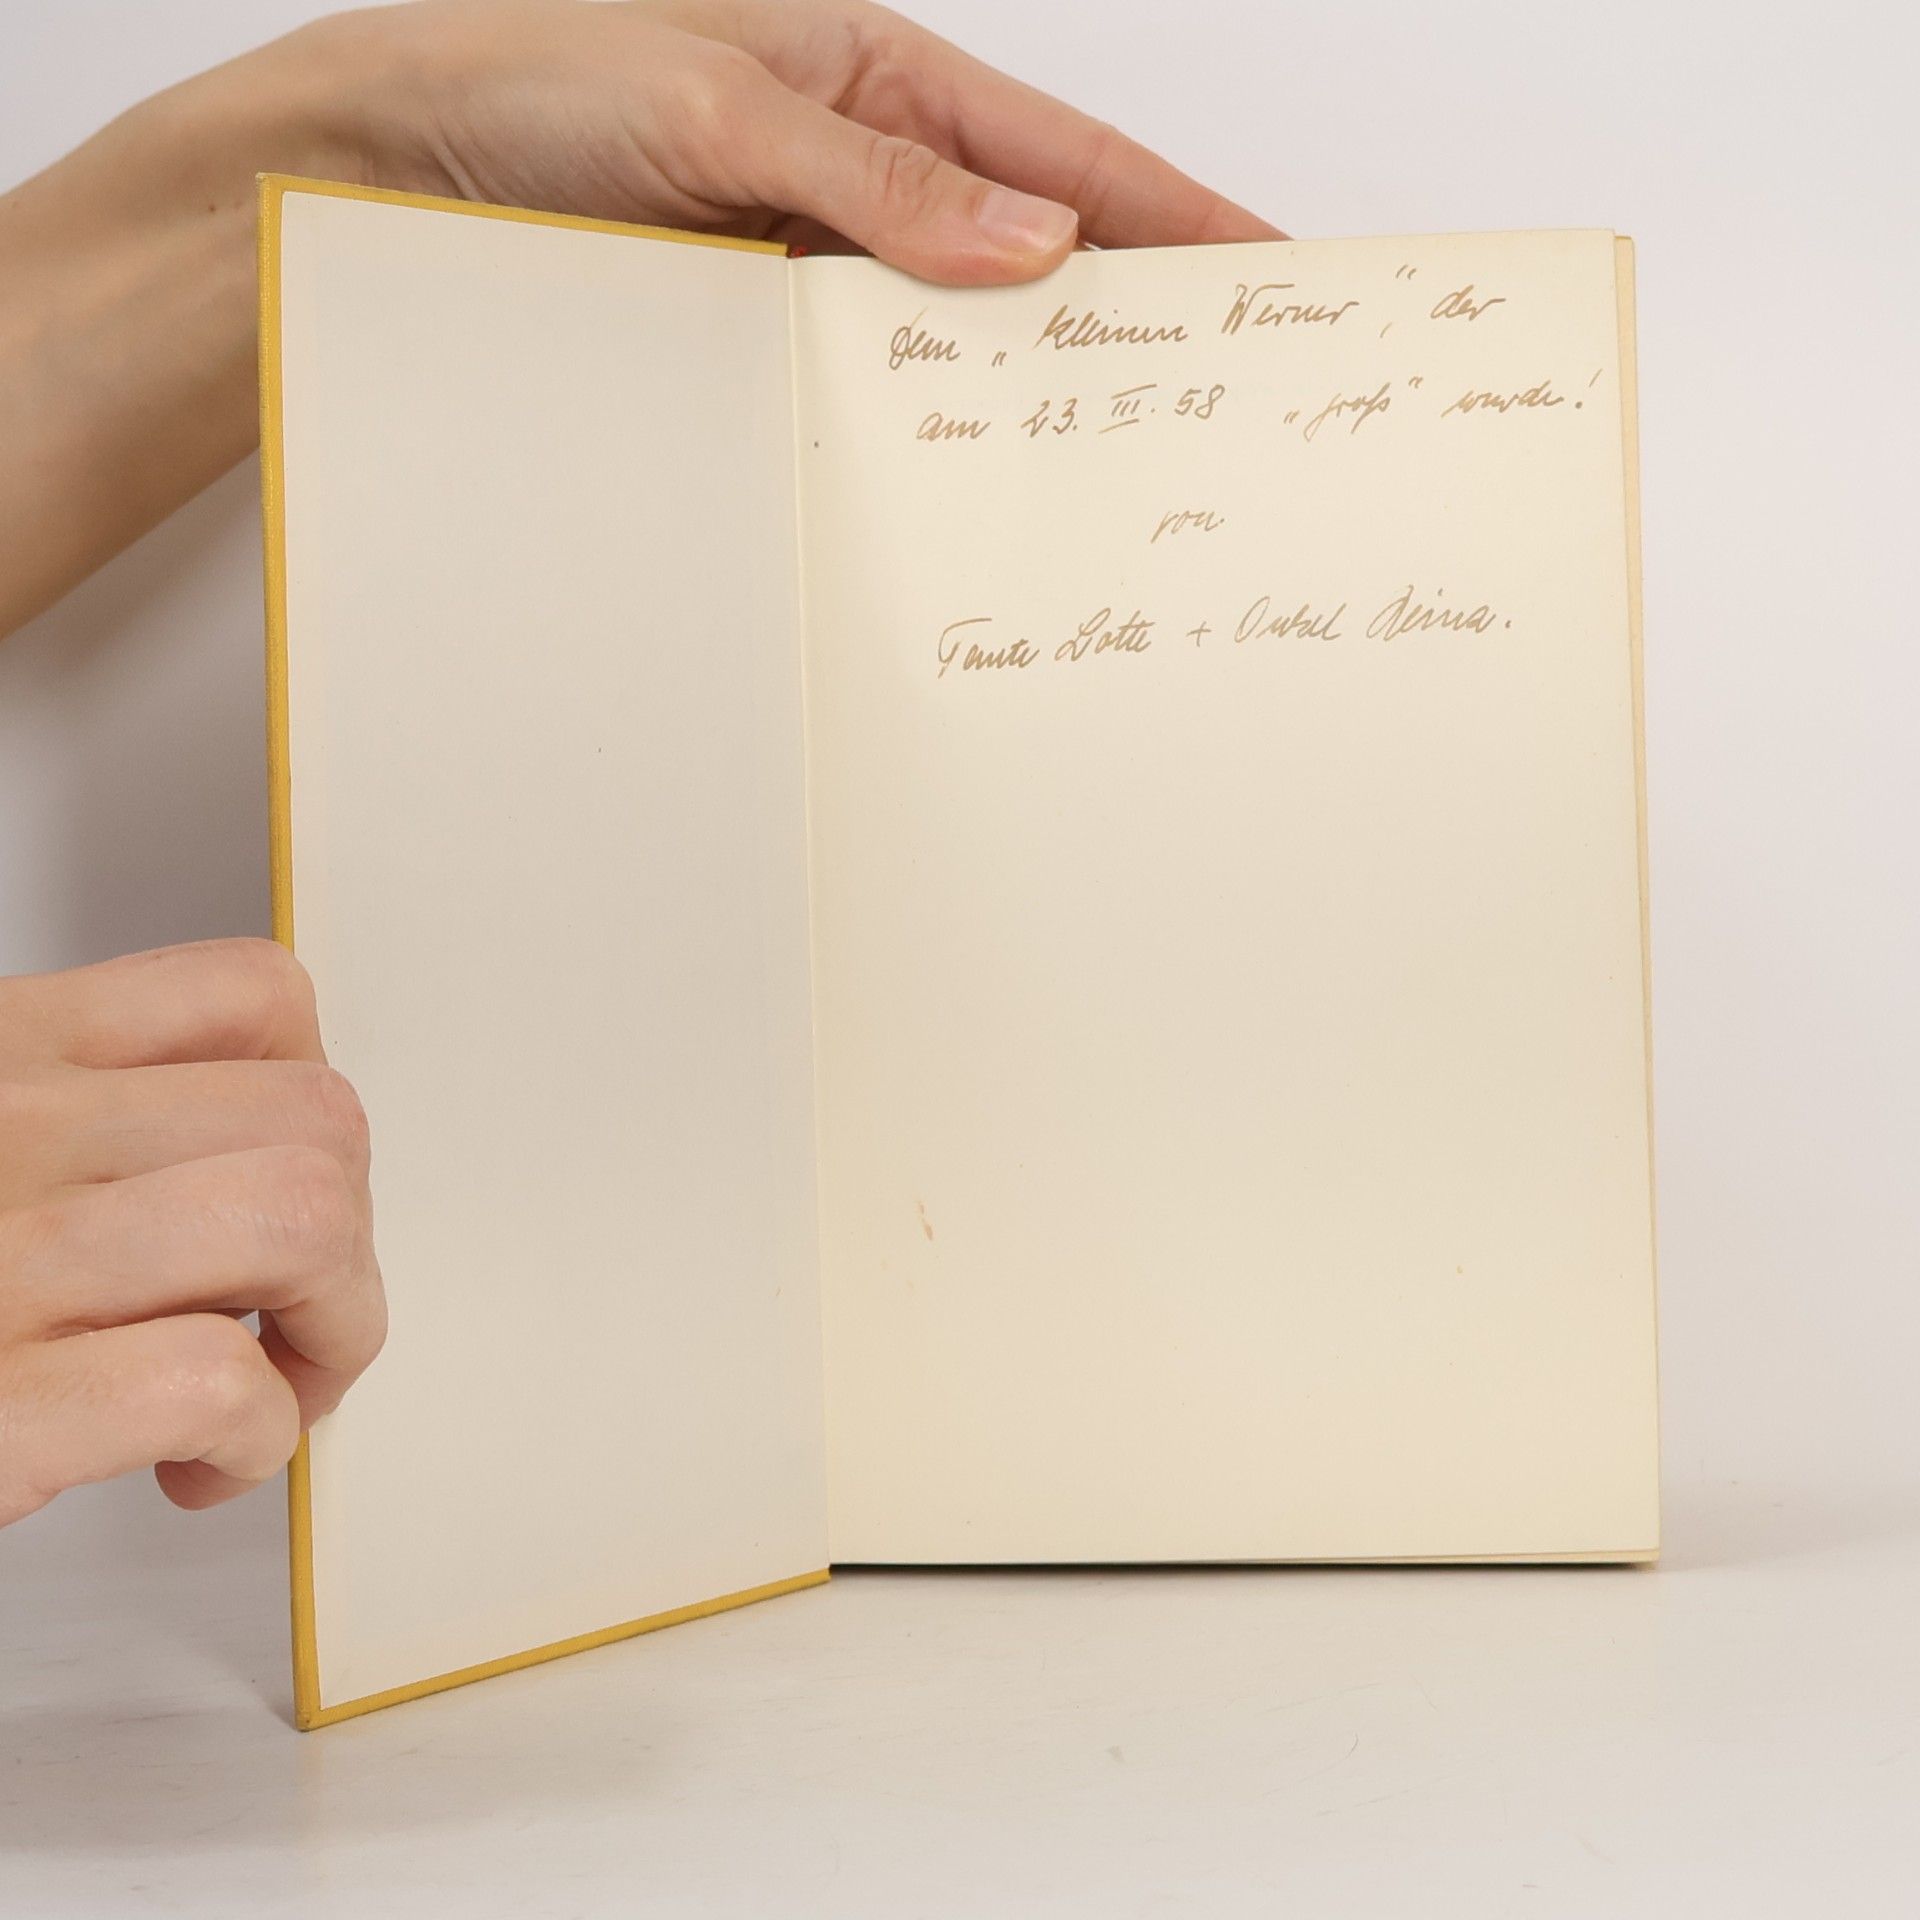 Dem „kleinen Werner“, der
am 23. III. 58 „groß“ wurde!
von
Tante Lotte + Onkel